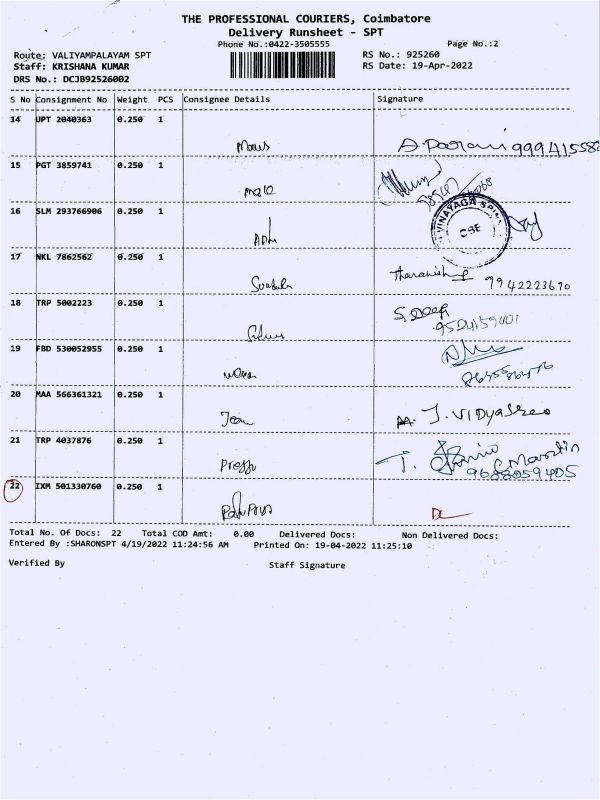 THE PROFESSIONAL COURIERS, Coimbatore
Delivery Runsheet - SPT
Phone No.:0422-3505555
Page No.:2
Route: VALIYAMPALAYAM SPT
RS No.: 925260
Staff: KRISHANA KUMAR
RS Date: 19-Apr-2022
DRS No.: DCJB92526002
S No Consignment No Weight PCS Consignee Details Signature
14 UPT 2040363 0.250 1
15 PGT 3859741 0.250 1
16 SLM 293766906 0.250 1
VINAYAGA
CBE
17 NKL 7862562 0.250 1
9942223690
18 TRP 5002223 0.250 1
S. Deep
19 FBD 530052955 0.250 1
20 MAA 566361321 0.250 1
J. VIDYA
21 TRP 4037876 0.250 1
T.
9688059405
22 IXM 501330760 0.250 1
Total No. Of Docs: 22 Total COD Amt: 0.00 Delivered Docs: Non Delivered Docs:
Entered By :SHARONSPT 4/19/2022 11:24:56 AM Printed On: 19-04-2022 11:25:10
Verified By Staff Signature